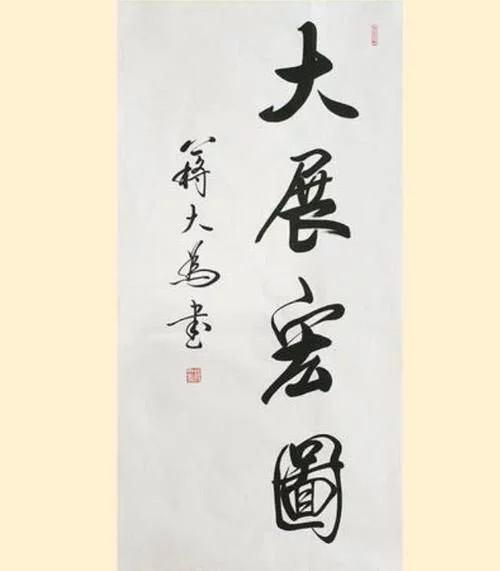 大展宏圖
蔣大為書